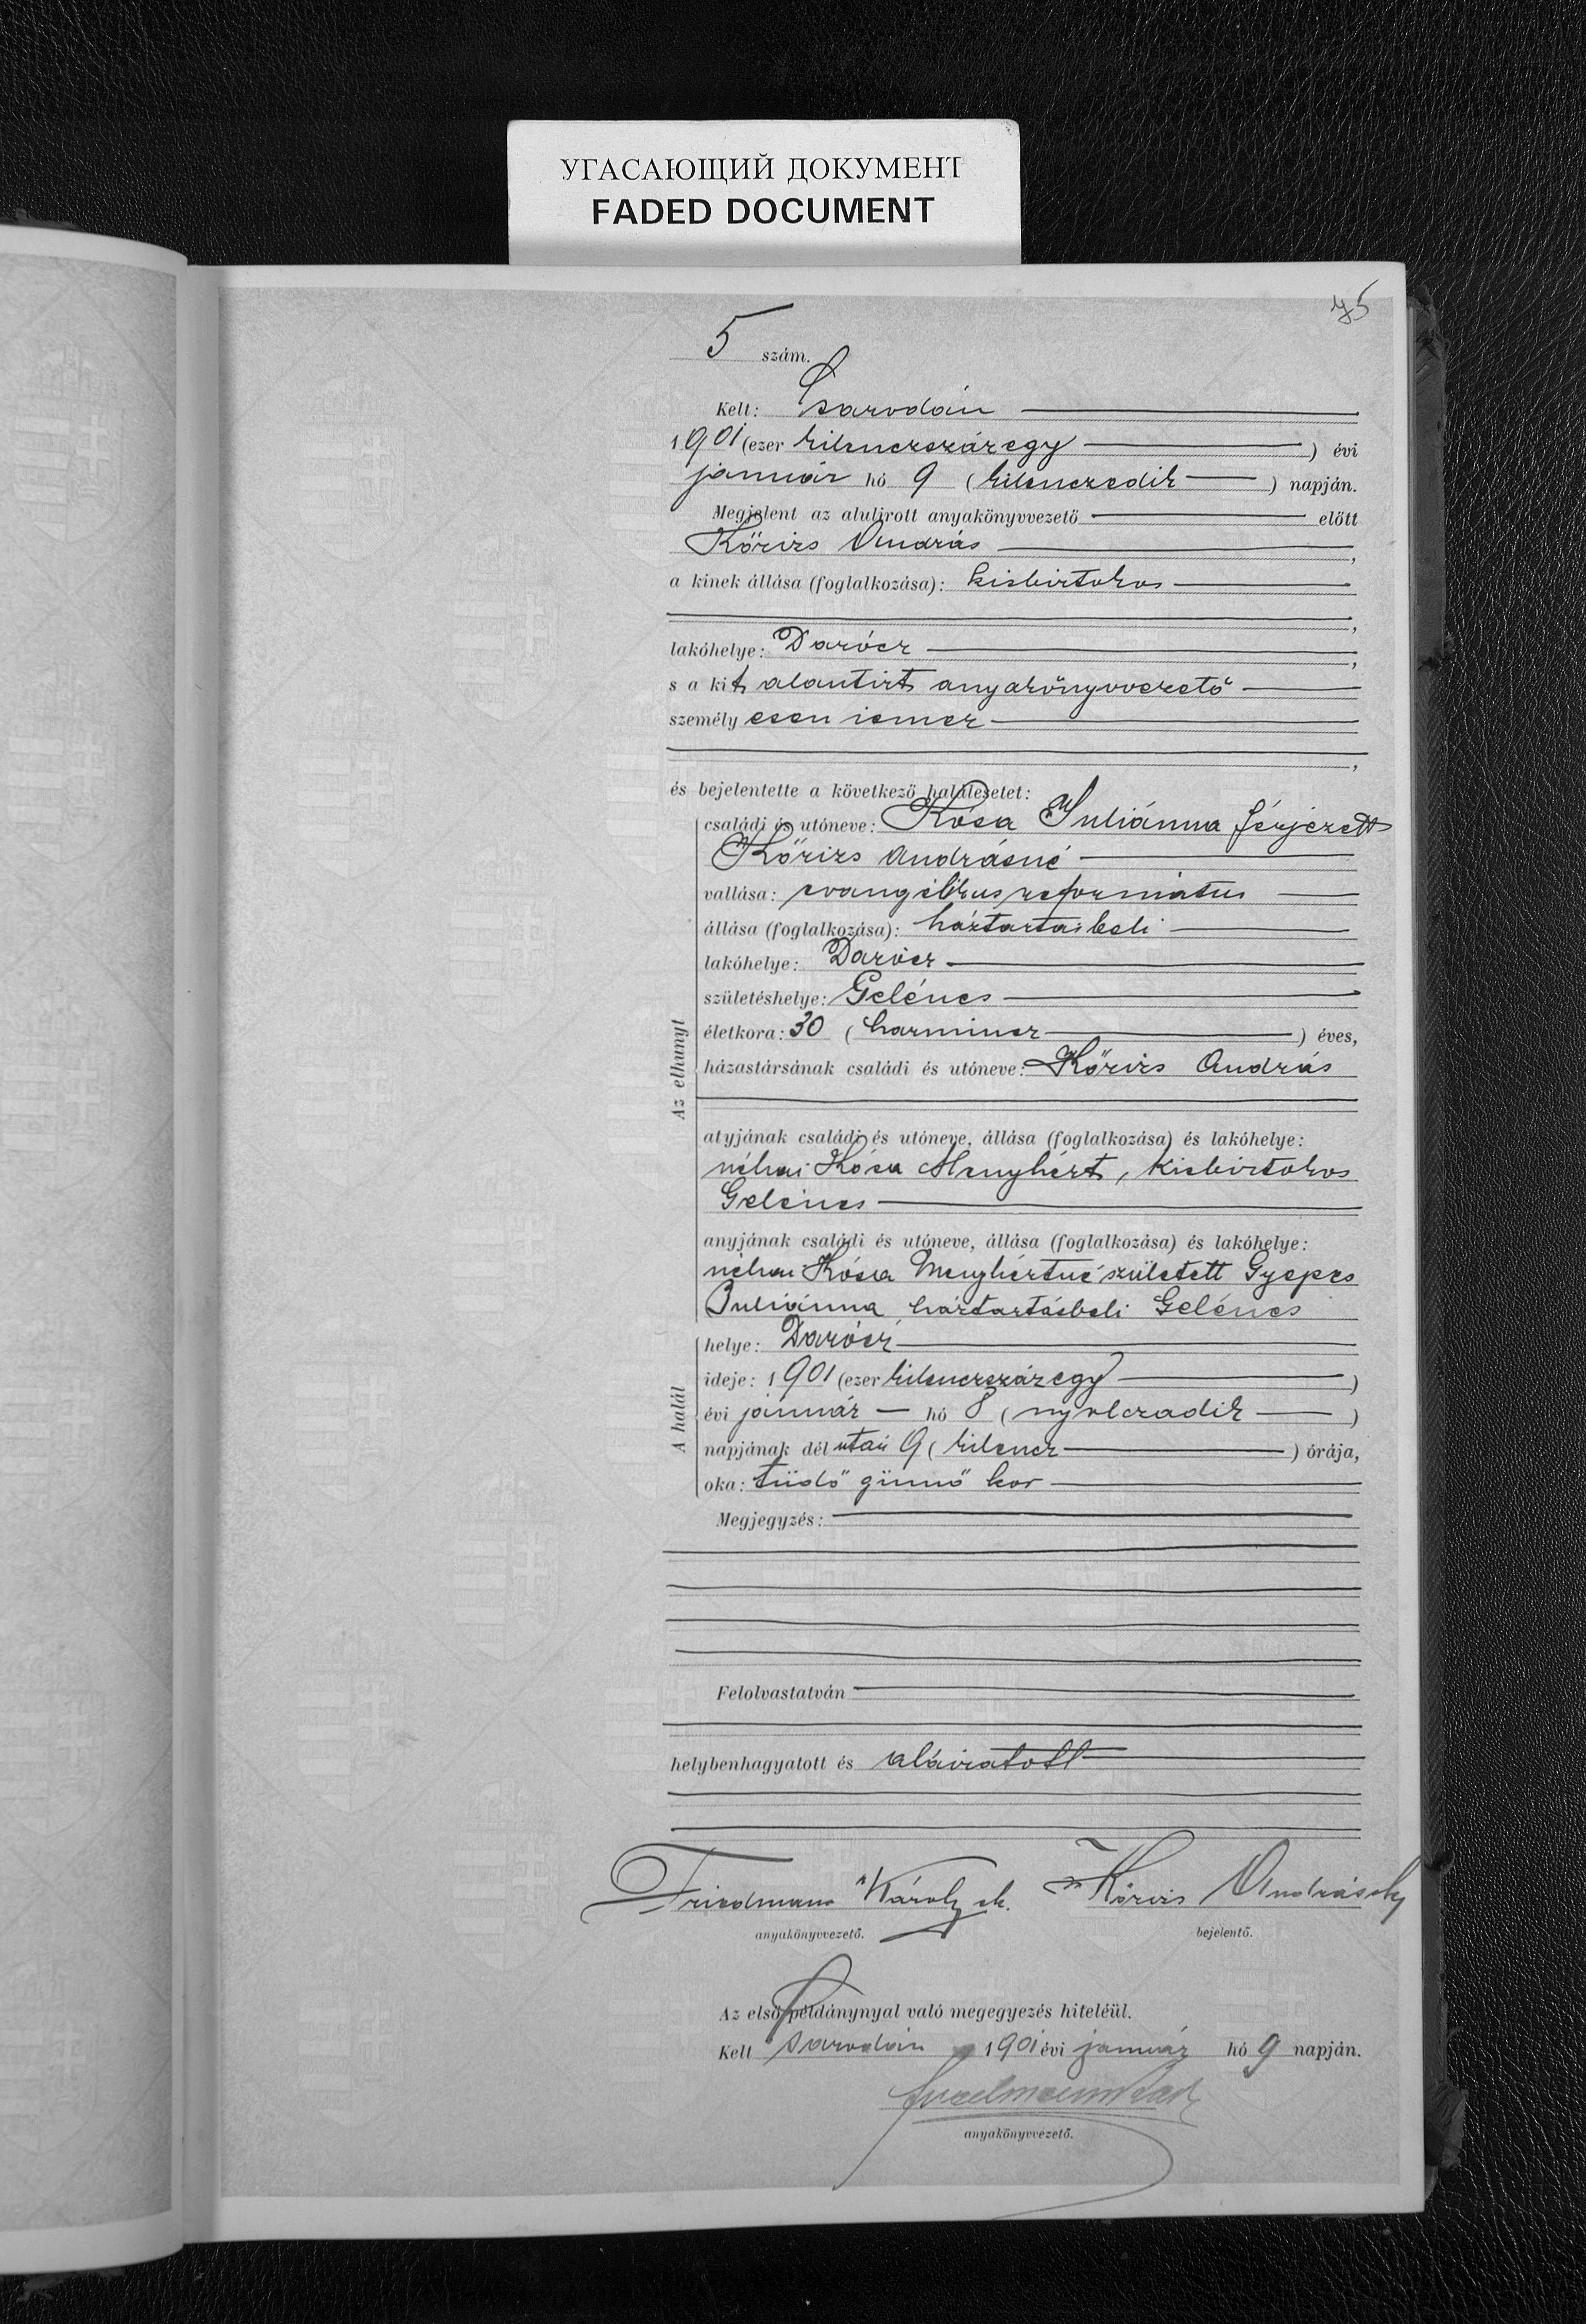 УГАСАЮЩИЙ ДОКУМЕНТ
FADED DOCUMENT
75
5 szám.
Kelt: Csarodán
1901 (ezer kilenczszázegy) évi
január hó 9 (kilenczedik) napján.
Megjelent az alulirott anyakönyvvezető előtt
Kőrizs András,
a kinek állása (foglalkozása): kisbirtokos
,
lakóhelye: Darócz,
s a kit alantirt anyakönyvvezető
személyesen ismer
,
és bejelentette a következő halálesetet:
Az elhunyt
családi és utóneve: Kósa Juliánna férjezett
Kőrizs Andrásné
vallása: evangélikus református
állása (foglalkozása): háztartásbeli
lakóhelye: Darócz
születéshelye: Gelénes
életkora: 30 (harmincz) éves,
házastársának családi és utóneve: Kőrizs András
atyjának családi és utóneve, állása (foglalkozása) és lakóhelye:
néhai Kósa Menyhért, kisbirtokos
Gelénes
anyjának családi és utóneve, állása (foglalkozása) és lakóhelye:
néhai Kósa Menyhértné született Gyepes
Juliánna háztartásbeli Gelénes
A halál
helye: Darócz
ideje: 1901 (ezer kilenczszázegy)
évi január hó 8 (nyolczadik)
napjának délután 9 (kilencz) órája,
oka: tüdő gümő kor
Megjegyzés:
Felolvastatván
helybenhagyatott és aláiratott
Friedmann Károly sk. Kőrizs András sk
anyakönyvvezető. bejelentő.
Az első példánynyal való megegyezés hiteléül.
Kelt Csarodán 1901 évi január hó 9 napján.
anyakönyvvezető.